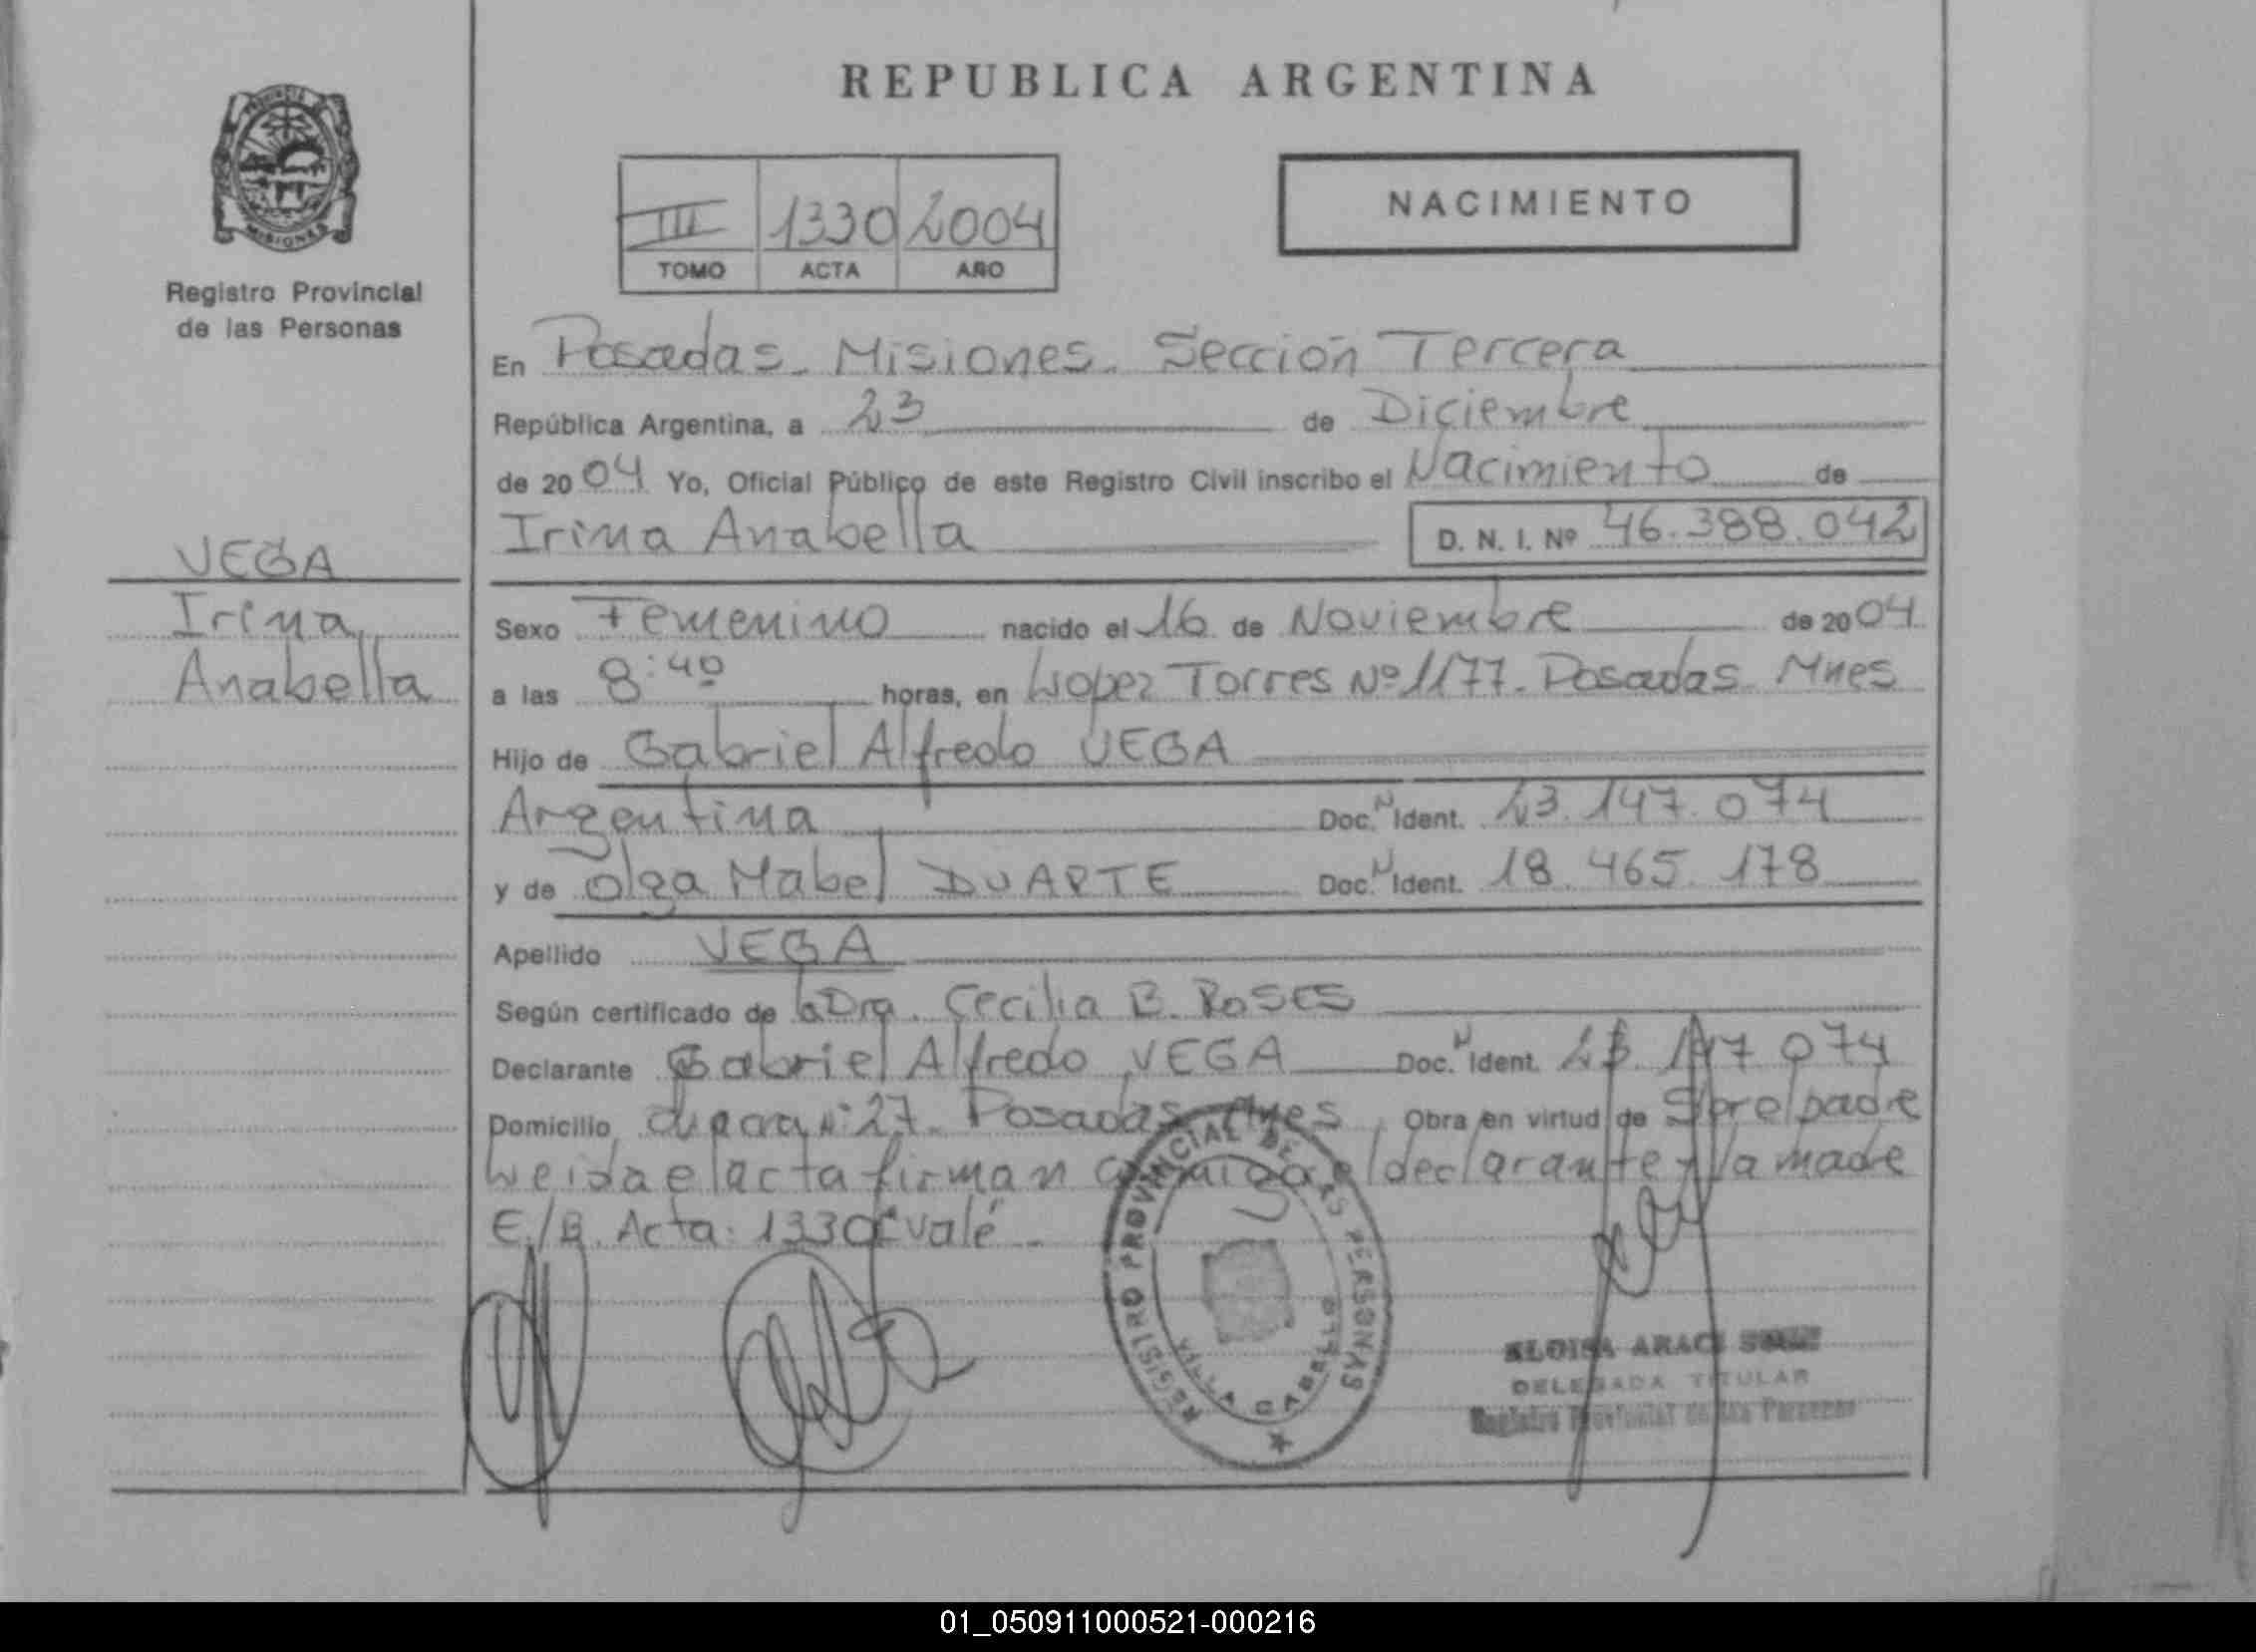 REPUBLICA ARGENTINA
PROVINCIA DE
MISIONES
Registro Provincial
de las Personas
III 1330 2004
TOMO ACTA AÑO
NACIMIENTO
En Posadas. Misiones. Sección Tercera
República Argentina, a 23 de Diciembre
de 2004 Yo, Oficial Público de este Registro Civil inscribo el Nacimiento de
Irina Anabella D. N. I. Nº 46.388.042
VEGA
Irina
Anabella
Sexo Femenino nacido el 16 de Noviembre de 2004
a las 8:40 horas, en Lopez Torres Nº 1177. Posadas. Mnes
Hijo de Gabriel Alfredo VEGA
Argentina Doc. N Ident. 23.147.074
y de Olga Mabel DUARTE Doc. N Ident. 18.465.178
Apellido VEGA
Según certificado de la Dra. Cecilia B. Roses
Declarante Gabriel Alfredo VEGA Doc. N Ident. 23 147 074
Domicilio Nº 27. Posadas Mnes Obra en virtud de Ser el padre
Leida el acta firman conmigo el declarante y la madre
E/B. Acta: 1330 vale.
REGISTRO PROVINCIAL DE LAS PERSONAS
VILLA CABELLO
ELOISA ARACI
DELEGADA TITULAR
Registro Provincial de las Personas
01_050911000521-000216